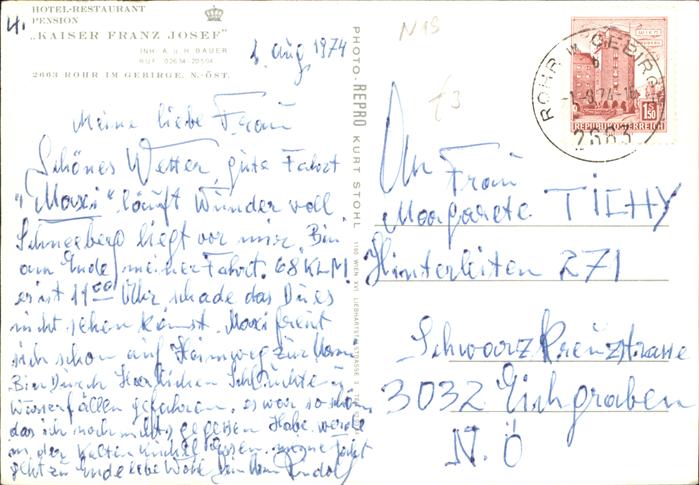 4.
HOTEL-RESTAURANT
PENSION
„KAISER FRANZ JOSEF"
INH. A. u. H. BAUER
RUF 02634-20504
2663 ROHR IM GEBIRGE, N.-ÖST.
1. aug, 1974
Meine liebe Frau
Schönes Wetter, gute Fahrt
"Maxi" läuft Wunder voll
Schneeberg liegt vor mir. Bin
am Ende meiner Fahrt. 68 KLM
es ist 11 00 Uhr schade das Du es
nicht sehen kanst. Maxi freut
sich schon auf Heimweg zur
Bin Durch Herrlichen Schluchten u
Wasserfällen gefahren, es war so schön
das ich noch nichts gegessen Habe. werde
in der Kalten Kuchl essen. meine
geht zu Ende Lebe Wohl dein Rudolf
PHOTO-REPRO KURT STOHL
1160 WIEN XVI, LIEBHARTSTALSTRASSE
N19
£3
WIEN
1.50
REPUBLIK ÖSTERREICH
ROHR IM GEBIRGE
-1.-8.74-16
2663
An Frau
Margarete TICHY
Hinterleiten 271
Schwarz Kreuzstrasse
3032 Eichgraben
N.Ö